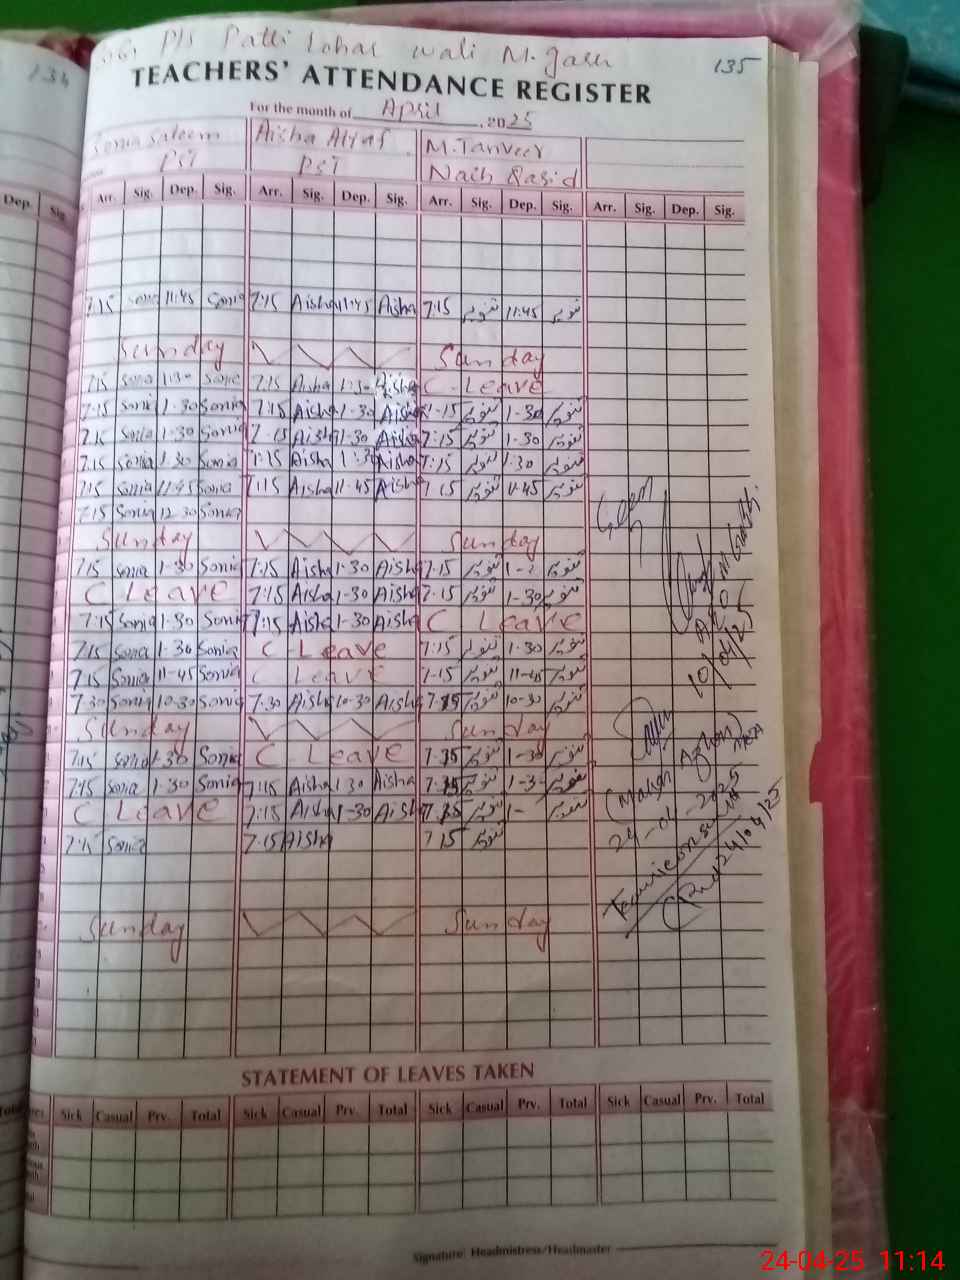 134
P/S Patti Lohar wali M. Garh 135
TEACHERS' ATTENDANCE REGISTER
For the month of April, 2025
Sonia Saleem Aisha Altaf M. Tanveer
PST PST Naib Qasid
Dep. Sig. Arr. Sig. Dep. Sig. Arr. Sig. Dep. Sig. Arr. Sig. Dep. Sig. Arr. Sig. Dep. Sig.
7.15 Sonia 11:45 Sonia 7:15 Aisha 11:45 Aisha 7:15 تنویر 11:45 تنویر
Sunday Sunday
7:15 Sonia 1:30 Sonia 7:15 Aisha 1:30 Aisha C-Leave
7:15 Sonia 1-30 Sonia 7:15 Aisha 1-30 Aisha 7-15 تنویر 1-30 تنویر
7:15 Sonia 1:30 Sonia 7:15 Aisha 1-30 Aisha 7:15 تنویر 1-30 تنویر
7:15 Sonia 1:30 Sonia 7:15 Aisha 1:30 Aisha 7:15 تنویر 1:30 تنویر
7:15 Sonia 11:45 Sonia 7:15 Aisha 11-45 Aisha 7.15 تنویر 11-45 تنویر
7:15 Sonia 12-30 Sonia
Sunday Sunday
7:15 Sonia 1-30 Sonia 7:15 Aisha 1-30 Aisha 7-15 تنویر تنویر
C Leave 7:15 Aisha 1-30 Aisha 7-15 تنویر 1-30 تنویر
7:15 Sonia 1:30 Sonia 7:15 Aisha 1-30 Aisha C Leave
7:15 Sonia 1-30 Sonia C-Leave 7:15 تنویر 1-30 تنویر
7:15 Sonia 11-45 Sonia C Leave 7-15 تنویر 11-45 تنویر
7-30 Sonia 10-30 Sonia 7.30 Aisha 10-30 Aisha تنویر 10-30 تنویر
Sunday Sunday
7:15 Sonia 1-30 Sonia C-Leave تنویر 1-30 تنویر
7:15 Sonia 1-30 Sonia 7:15 Aisha 1.30 Aisha تنویر تنویر
C Leave 7:15 Aisha 1-30 Aisha تنویر تنویر
7:15 Sonia 7:15 Aisha 7 15 تنویر
Sunday Sunday
AEO M. Garh
10/04/25
24-04-2025
24/04/25
STATEMENT OF LEAVES TAKEN
Sick Casual Prv. Total Sick Casual Prv. Total Sick Casual Prv. Total Sick Casual Prv. Total
Signature: Headmistress/Headmaster
24-04-25 11:14